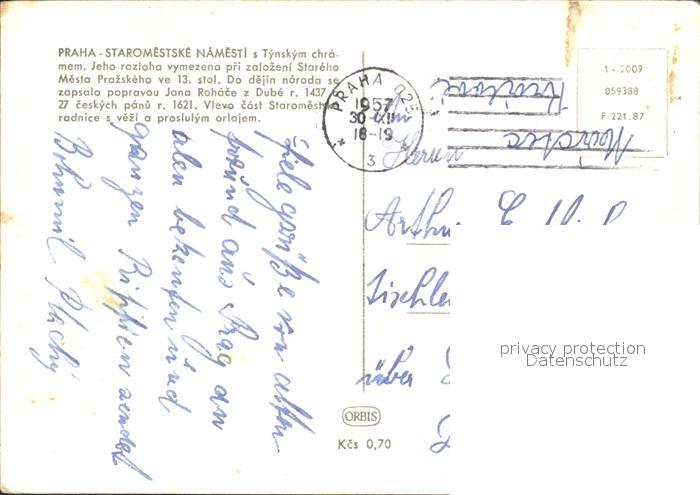 PRAHA - STAROMĚSTSKÉ NÁMĚSTÍ s Týnským chrá-
mem. Jeho rozloha vymezena při založení Starého
Města Pražského ve 13. stol. Do dějin národa se
zapsalo popravou Jana Roháče z Dubé r. 1437
27 českých pánů r. 1621. Vlevo část Staroměst
radnice s věží a proslulým orlojem.
PRAHA 025
1957
30-XII
18-19
3
1-2009
059388
F 221.87
Herrn
Arthur
Tischle
über
fiele grüße von alten
freund aus Prag an
alen bekenten und
ganzen Rippien sendet
Bohumil Plachý
ORBIS
Kčs 0,70
privacy protection
Datenschutz